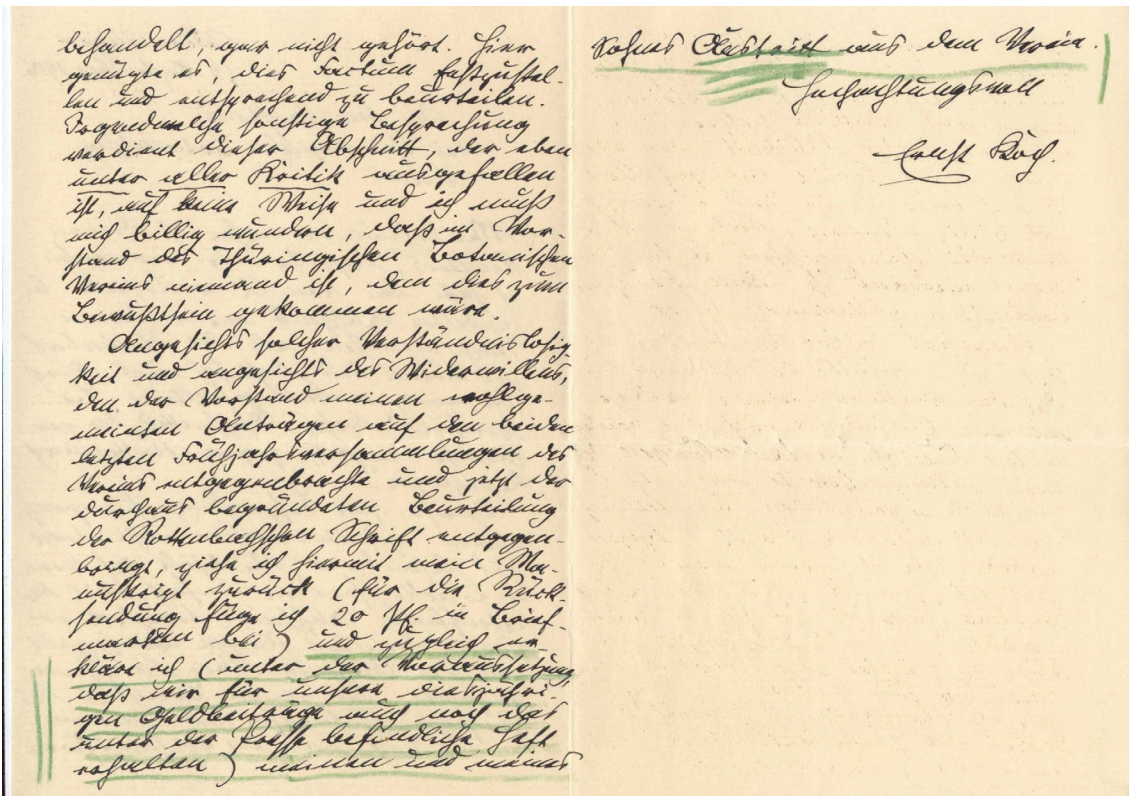 behandelt, gar nicht gehört. Hier
genügte es, dies Factum festzustel-
len und entsprechend zu beurteilen.
Irgendwelche sonstige Besprechung
verdient dieser Abschnitt, der eben
unter aller Kritik ausgefallen
ist, auf keine Weise und ich muß
mich billig wundern, daß im Vor-
stand des Thüringischen Botanischen
Vereins niemand ist, dem dies zum
Bewußtsein gekommen wäre.
Angesichts solcher Verständnislosig-
keit und angesichts des Widerwillens,
den der Vorstand meinen wohlge-
meinten Anträgen auf den beiden
letzten Frühjahrsversammlungen des
Vereins entgegenbrachte und jetzt der
durchaus begründeten Beurteilung
der Rottenbachschen Schrift entgegen-
bringt, ziehe ich hiermit mein Ma-
nuskript zurück (für die Rück-
sendung füge ich 20 Pf. in Brief-
marken bei) und zugleich er-
kläre ich (unter der Voraussetzung,
daß wir für unsere diesjähri-
gen Geldbeiträge auch noch das
unter der Presse befindliche Heft
erhalten) meinen und meines
Sohnes Austritt aus dem Verein.
Hochachtungsvoll
Ernst Koch.